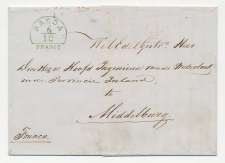 BREDA
6/10
FRANCO
Wel Ed. Gestr. Heer
Den Heer Hoofd Ingenieur van de Waterstaat
in de Provincie Zeeland
te
Middelburg.
Franco.